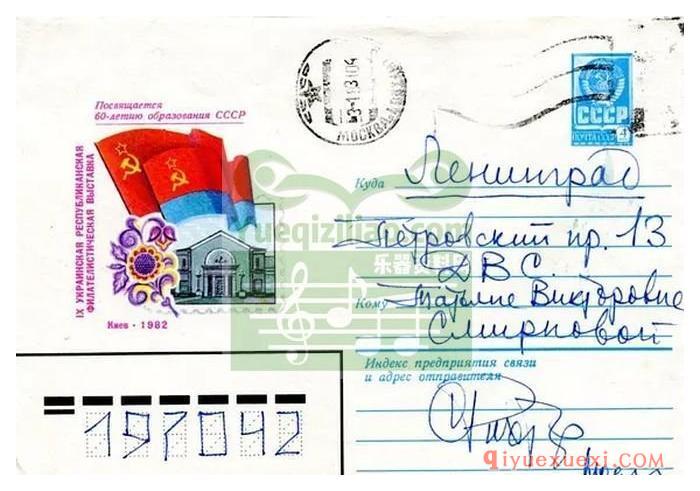 Посвящается
60-летию образования СССР
IX УКРАИНСКАЯ РЕСПУБЛИКАНСКАЯ
ФИЛАТЕЛИСТИЧЕСКАЯ ВЫСТАВКА
Киев · 1982
МОСКВА
СССР
ПОЧТА СССР
4
Куда Ленинград
Петровский пр. 13
ДВС.
Кому Татьяне Викторовне
Смирновой
Индекс предприятия связи
и адрес отправителя
197042
Yueqiziliao.com
乐器资料
qiyuexuexi.com